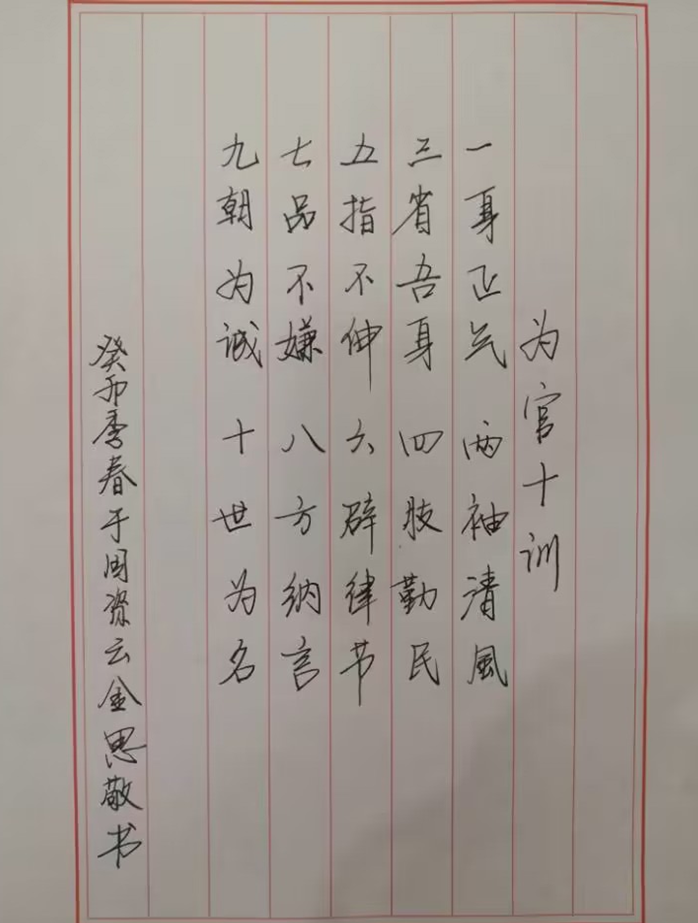 为官十训
一身正气 两袖清風
三省吾身 四肢勤民
五指不伸 六辟律节
七品不嫌 八方纳言
九朝为诚 十世为名
癸卯季春于国资云金思敬书